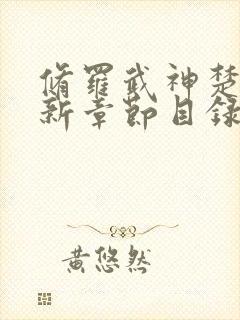 脩羅武神楚
新章節目錄
黃悠然